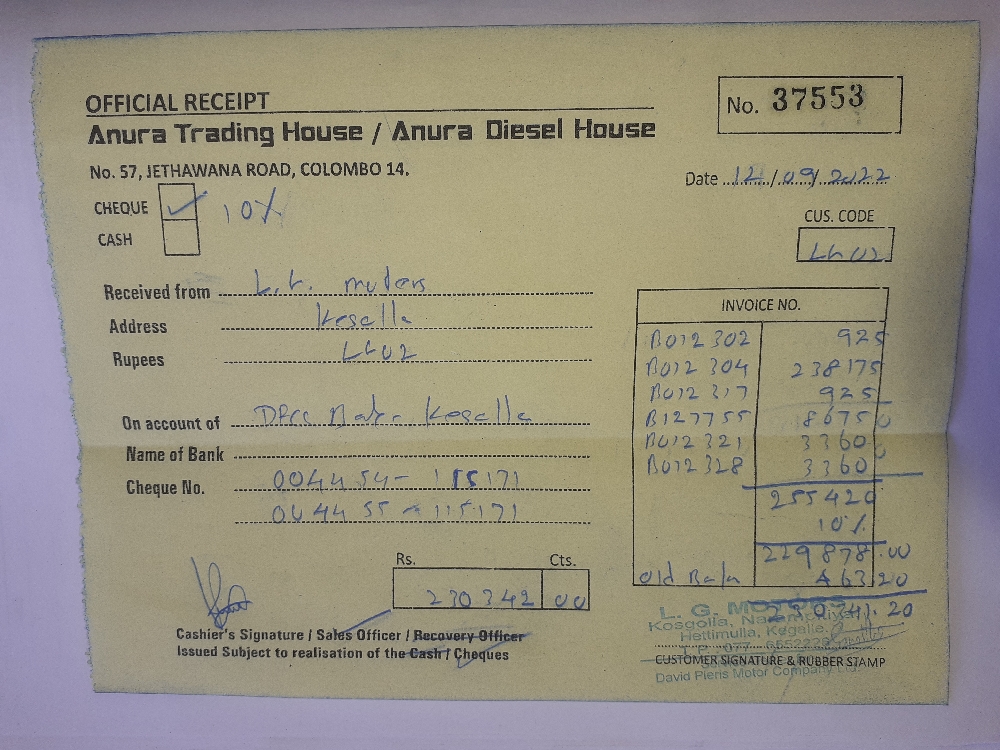 OFFICIAL RECEIPT
No. 37553
Anura Trading House / Anura Diesel House
No. 57, JETHAWANA ROAD, COLOMBO 14.
Date 12/09/2022
CHEQUE ✓ 10%
CASH
CUS. CODE
LG02
Received from L.G. motors
Address Kegalle
Rupees LG02
On account of Bata Kegalle
Name of Bank
Cheque No. 004454 - 115171
004455 - 115171
INVOICE NO.
B012302 925
B012304 238175
B012317 925
B127755 8675
B012321 3360
B012328 3360
255420
10%
229878.00
Old Bala 463.20
230341.20
Rs. Cts.
230342 00
Cashier's Signature / Sales Officer / Recovery Officer
Issued Subject to realisation of the Cash / Cheques
L. G. MOTORS
Kosgolla,
Hettimulla, Kegalle.
CUSTOMER SIGNATURE & RUBBER STAMP
David Pieris Motor Company Ltd.